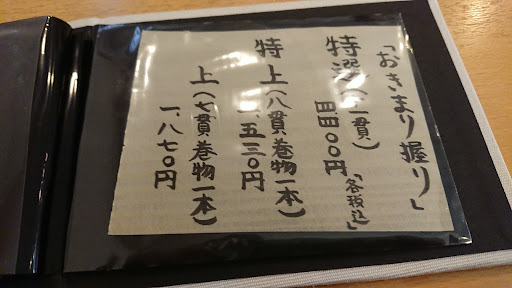 「おきまり握り」
特選(十一貫)
四、四〇〇円
「各税込」
特上(八貫巻物一本)
二、五三〇円
上(七貫巻物一本)
一、八七〇円